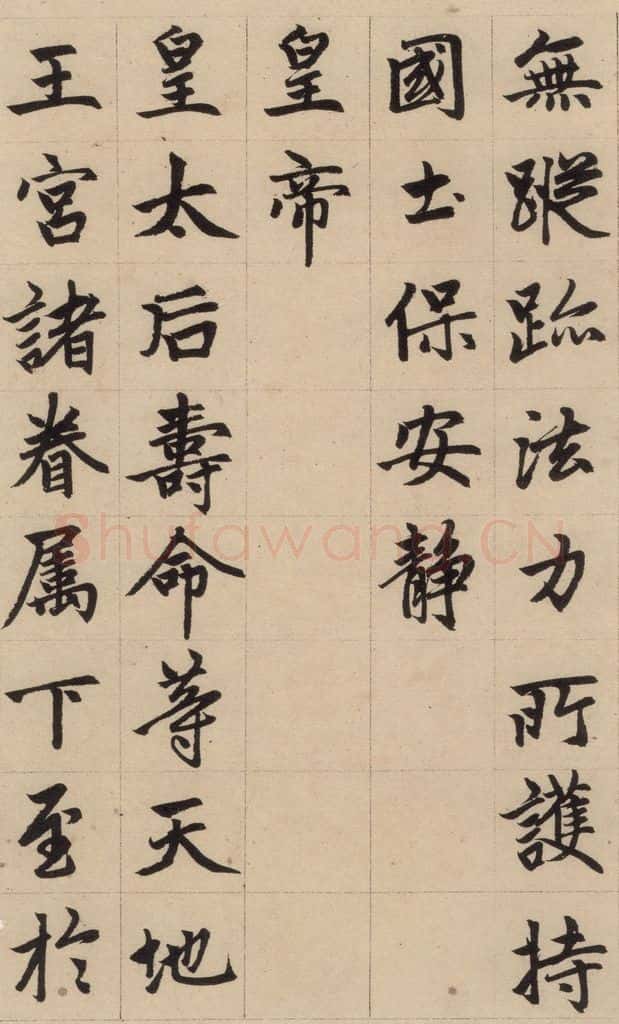 無蹤跡法力所護持
國土保安靜
皇帝
皇太后壽命等天地
王宮諸眷属下至於
Shufawang.CN